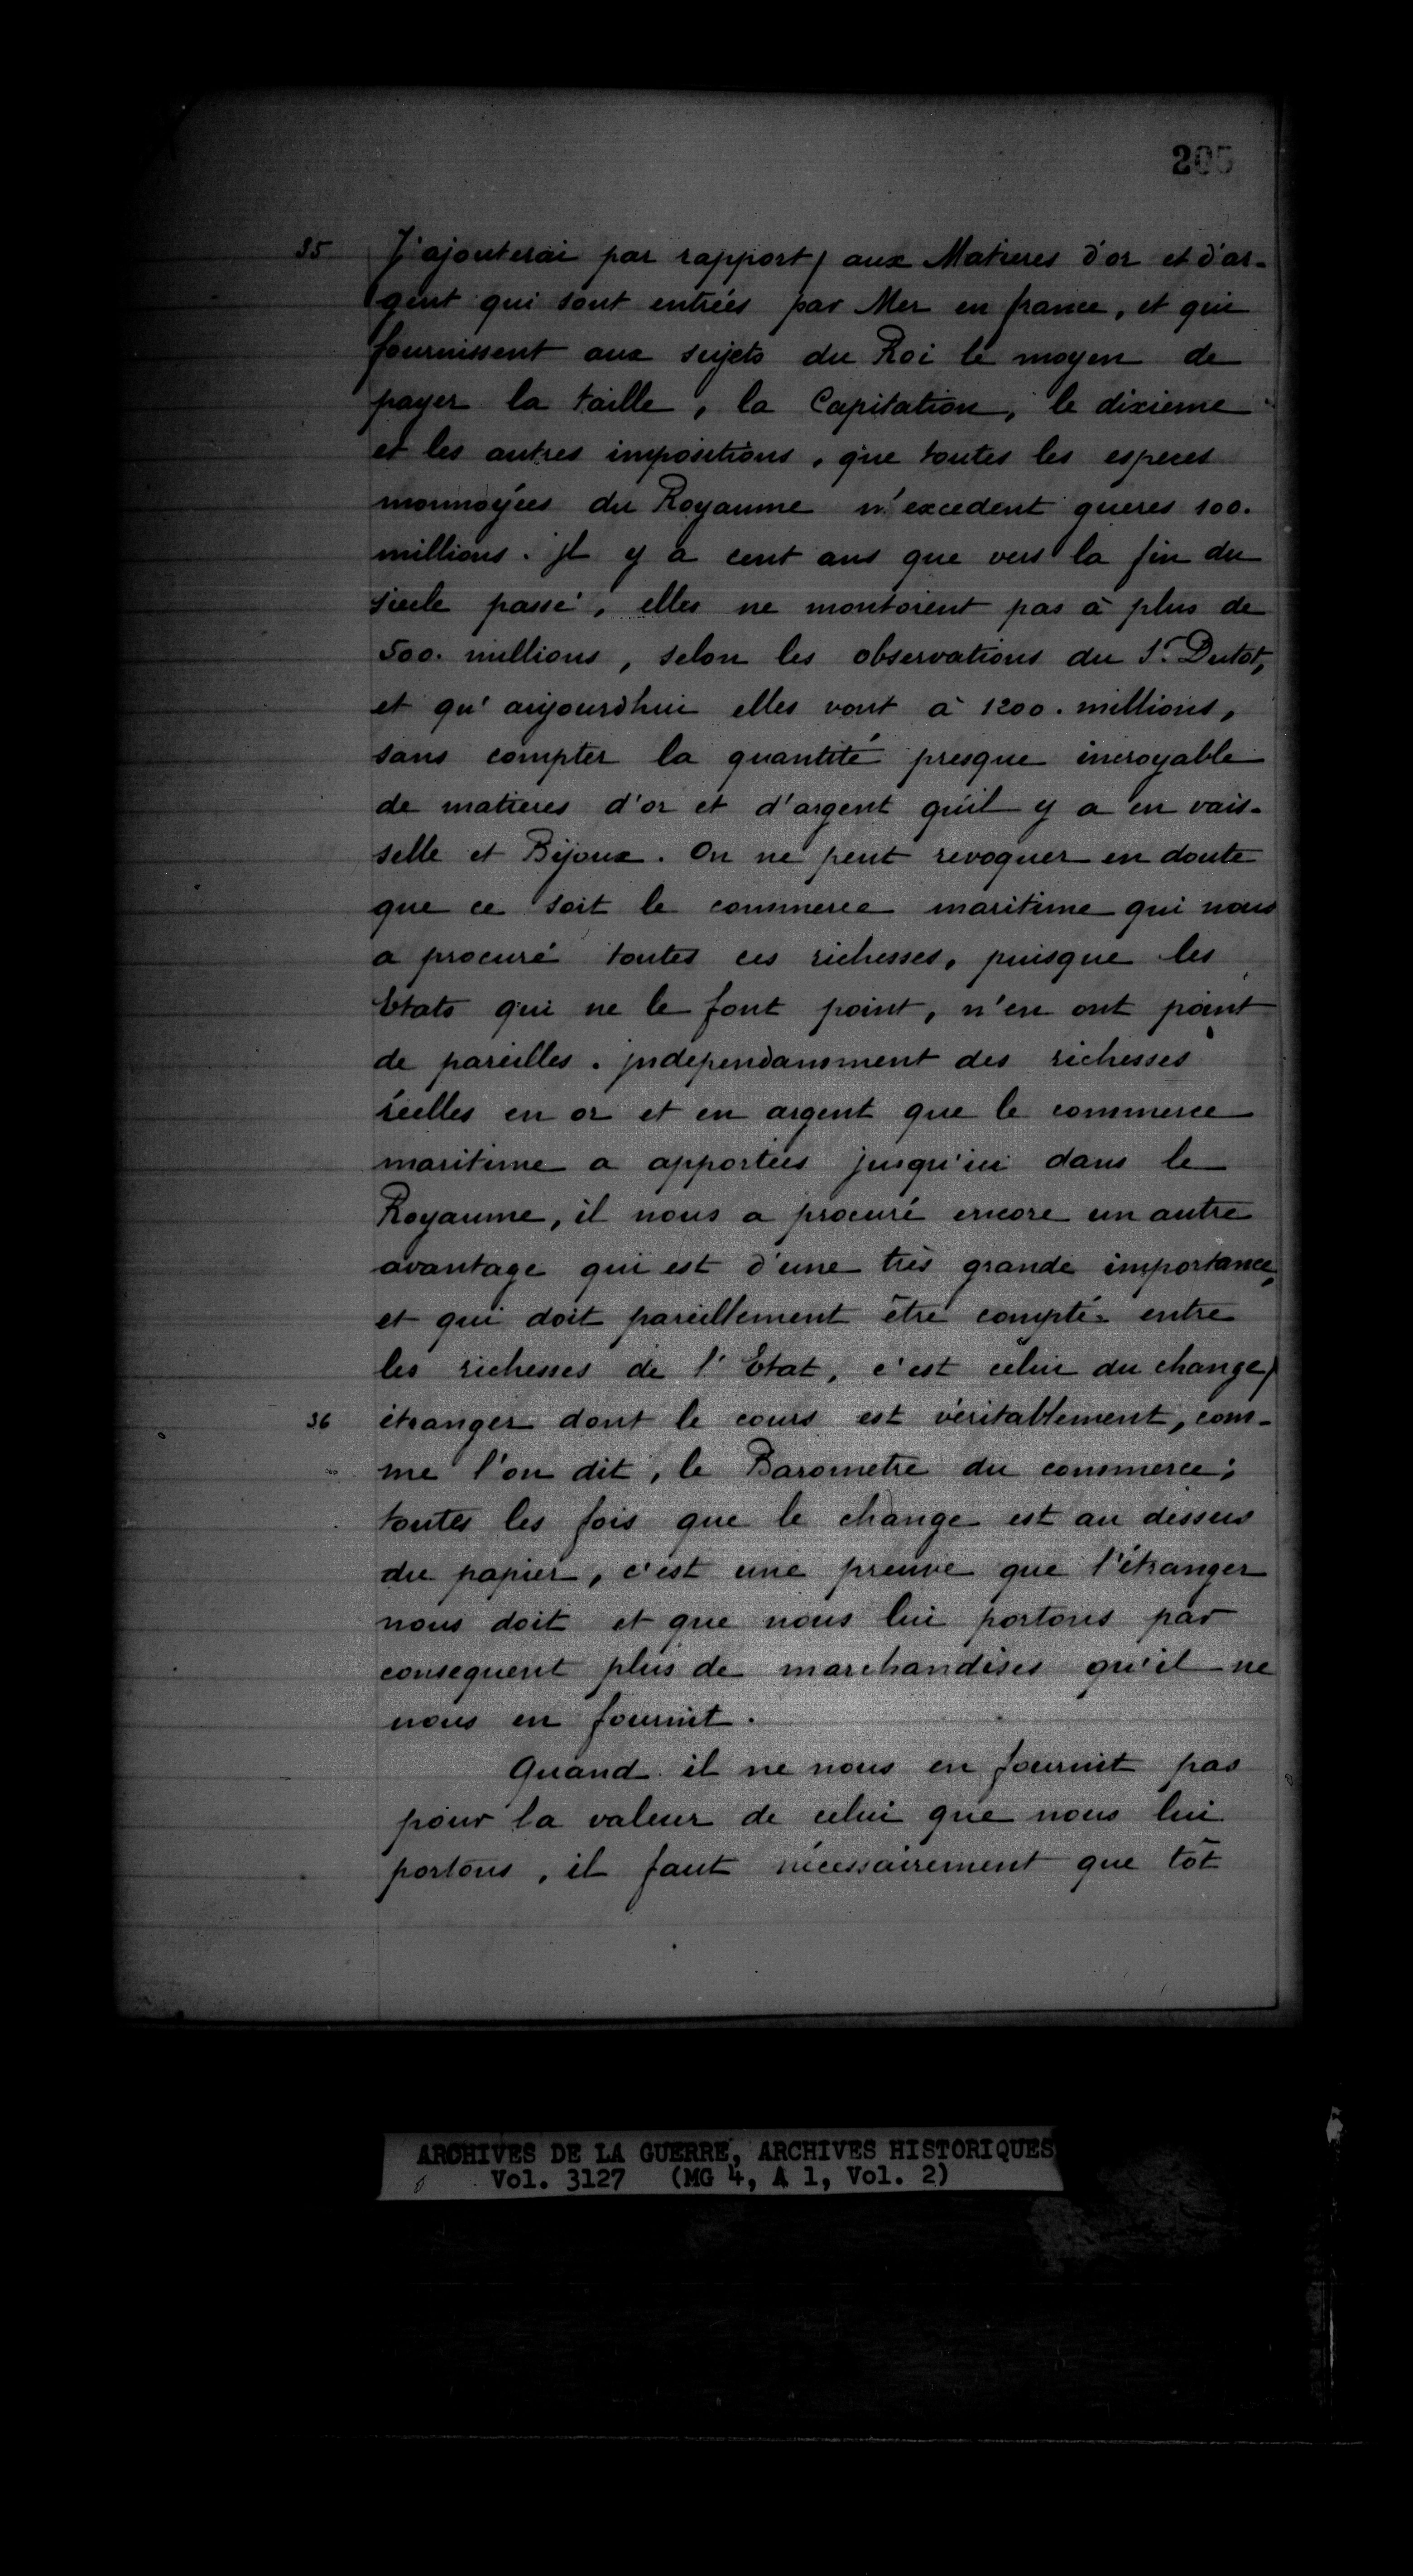 205
35 J'ajouterai par rapport) aux Matieres d'or et d'ar-
gent qui sont entrées par Mer en france, et qui
fournissent aux sujets du Roi le moyen de
payer la taille, la Capitation, le dixieme
et les autres impositions, que toutes les especes
monnoyées du Royaume n'excedent gueres 100.
millions. Jl y a cent ans que vers la fin du
siecle passé, elles ne montoient pas à plus de
500. millions, selon les observations du Sr. Dutot,
et qu'aujourdhui elles vont à 1200. millions,
sans compter la quantité presque incroyable
de matieres d'or et d'argent qu'il y a en vais-
selle et Bijoux. On ne peut revoquer en doute
que ce soit le commerce maritime qui nous
a procuré toutes ces richesses, puisque les
Etats qui ne le font point, n'en ont point
de pareilles. jndependamment des richesses
réelles en or et en argent que le commerce
maritime a apportées jusqu'ici dans le
Royaume, il nous a procuré encore un autre
avantage qui est d'une très grande importance,
et qui doit pareillement être compté entre
les richesses de l'Etat, c'est celui du change)
36 étranger dont le cours est véritablement, com-
me l'on dit, le Barometre du commerce;
toutes les fois que le change est au dessus
du papier, c'est une preuve que l'étranger
nous doit et que nous lui portons par
consequent plus de marchandises qu'il ne
nous en fournit.
Quand il ne nous en fournit pas
pour la valeur de celui que nous lui
portons, il faut nécessairement que tôt
ARCHIVES DE LA GUERRE, ARCHIVES HISTORIQUES
Vol. 3127 (MG 4, A 1, Vol. 2)